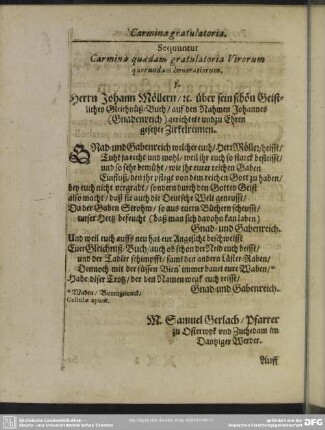 Carmina gratulatoria.
Sequuntur
Carmina quædam gratulatoria Virorum
quorundam
I.
Herrn Johann Möllern / ꝛc. über sein schön Geist-
liches Gleichnüß-Buch / auf den Nahmen Johannes
(Gnadenreich) gerichtet und zu Ehren
gesetzte Zirkelreimen.
GNad-und Gabenreich welcher euch / Herr Möller / heisst /
Tuht sa recht und wohl / weil ihr euch so starck befleisst /
und so sehr bemühet / wie ihr eurer reichen Gaben
Einfluß / den ihr pflegt von dem reichen Gott zu haben /
bey euch nicht vergrabt / sondern durch den Gottes Geist
also macht / daß für auch die Deutsche Welt geneusst /
Da der Gaben Strohm / so aus euren Büchern fleusst /
unser Hertz befeucht (daß man sich davohn kan laben)
Gnad- und Gabenreich.
Und weil euch auffs neu hat eur Angesicht beschweisst
Euer Gleichniß-Buch / auch ob schon der Neid euch beisst /
und der Tadler schimpfft / samt den andern Läster-Raben /
Dennoch mit der süssen Bien' immer bauet eure Waben / *
Habe dieser Trotz / der den Namen euch reisst /
Gnad und Gabenreich.
* Waben / Bienengewürck /
Cellulæ apum.
M. Samuel Gerlach / Pfarrer
zu Osterwyk und Zuchedam im
Dantziger Werder.
Auff